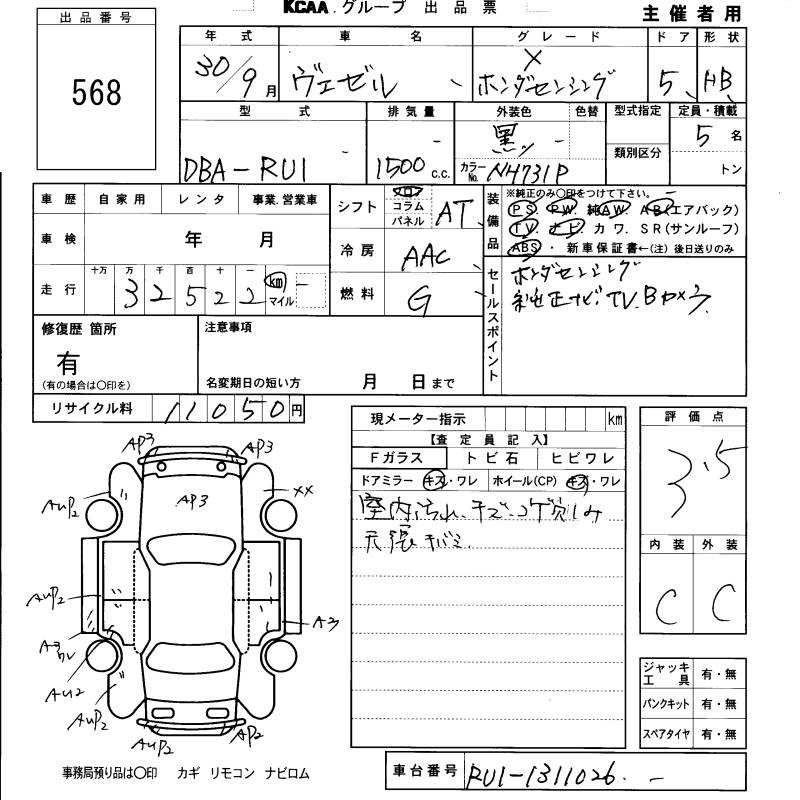 KCAA グループ 出品票
主催者用
出品番号
568
年式 車名 グレード ドア 形状
30/9月 ヴェゼル X ホンダセンシング 5 HB
型式 排気量 外装色 色替 型式指定 定員・積載
DBA-RU1 1500 c.c. 黒 カラーNo. NH731P 類別区分 5名
トン
車歴 自家用 レンタ 事業.営業車
車検 年 月
走行 十万 万 千 百 十 一
3 2 5 2 2 km マイル
シフト フロア コラム パネル AT
冷房 AAC
燃料 G
装備品
※純正のみ○印をつけて下さい。
PS. PW. 純AW. AB(エアバック)
TV. ナビ. カワ. SR(サンルーフ)
ABS・新車保証書←(注)後日送りのみ
セールスポイント
ホンダセンシング
純正ナビ.TV.Bカメラ
修復歴 箇所
有
(有の場合は○印を)
注意事項
名変期日の短い方 月 日まで
リサイクル料 11050円
現メーター指示 km
【査定員記入】
Fガラス トビ石 ヒビワレ
ドアミラー キズ・ワレ ホイール(CP) キズ・ワレ
室内汚れ、キズ、コゲ
天張
評価点
3.5
内装 外装
C C
AP3 AP3
AP3
XX
AUP2
AUP2
A3
A3
ワレ
AU2
AUP2
AUP2 AP2
ジャッキ工具 有・無
パンクキット 有・無
スペアタイヤ 有・無
事務局預り品は○印 カギ リモコン ナビロム
車台番号 RU1-1311026